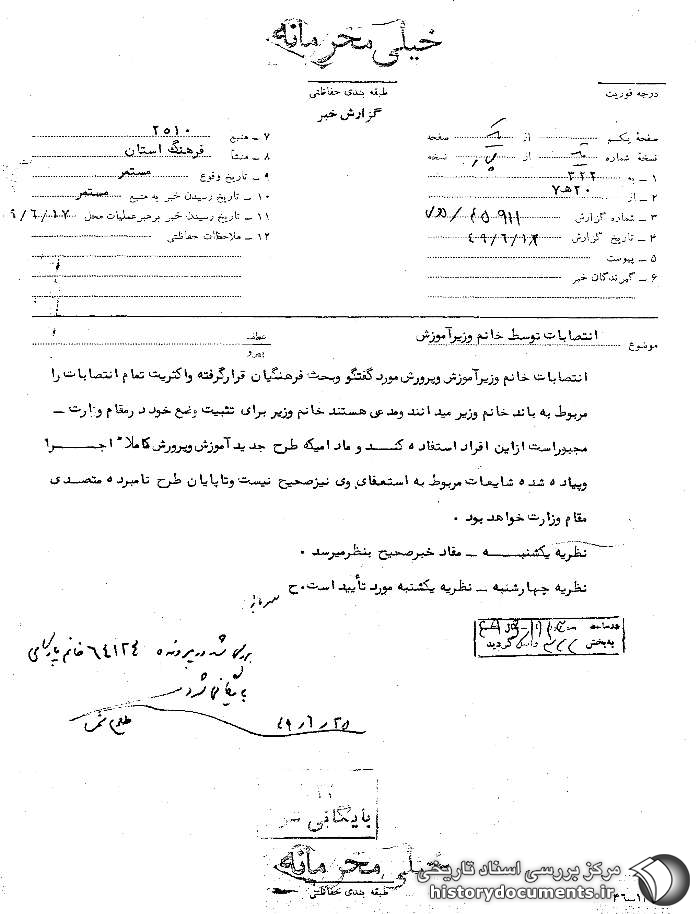 خیلی محرمانه
طبقه بندی حفاظتی
درجه فوریت
گزارش خبر
صفحهٔ یکم از یک صفحه
نسخهٔ شماره از نسخه
۱ ـ به ۳۲۲
۲ ـ از ۲۰هـ۷
۳ ـ شماره گزارش
۴ ـ تاریخ گزارش ۴۹٫۶٫۱۹
۵ ـ پیوست
۶ ـ گیرندگان خبر
۷ ـ منبع ۲۵۱۰
۸ ـ منشأ فرهنگ استان
۹ ـ تاریخ وقوع مستمر
۱۰ ـ تاریخ رسیدن خبر به منبع مستمر
۱۱ ـ تاریخ رسیدن خبر برهبرعملیات محل ۹٫۶٫۱۷
۱۲ ـ ملاحظات حفاظتی
موضوع انتصابات توسط خانم وزیرآموزش
عطف
پیرو
انتصابات خانم وزیرآموزش وپرورش مورد گفتگو وبحث فرهنگیان قرارگرفته واکثریت تمام انتصابات را
مربوط به باند خانم وزیر میدانند ومدعی هستند خانم وزیر برای تثبیت وضع خود درمقام وزارت ـ
مجبوراست ازاین افراد استفاده کنـد و مادامیکه طرح جدید آموزش وپرورش کاملاً اجـــرا
وپیاده شده شایعات مربوط به استعفای وی نیزصحیح نیست وتاپایان طرح نامبرده متصـدی
مقام وزارت خواهد بود .
نظریه یکشنبـــه ـ مفاد خبرصحیح بنظرمیرسد .
نظریه چهارشنبه ـ نظریه یکشنبه مورد تأیید است.ح
به بخش ۳۲۲ واصل گردید
بررسی شد در پرونده ۶۴۱۲۴ خانم پارسای
بایگانی شود
۴۹٫۶٫۲۵
بایگانی
خیلی محرمانه
طبقه بندی حفاظتی
مرکز بررسی اسناد تاریخی
historydocuments.ir